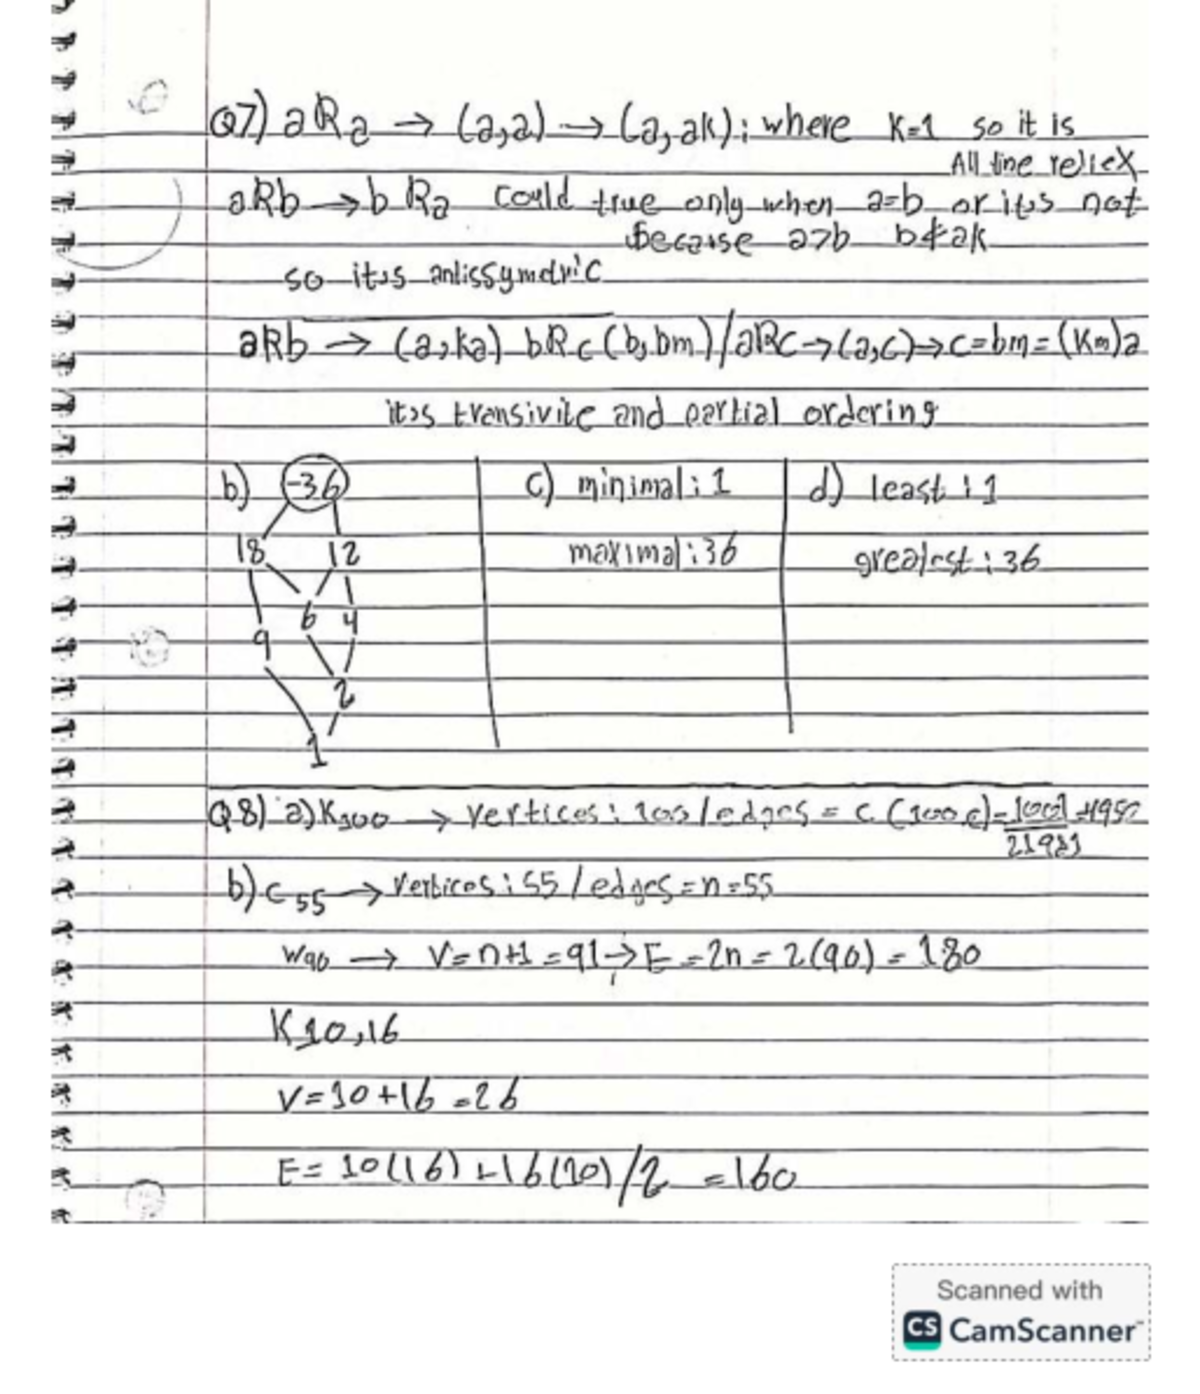 Q7) aRa → (a,a) → (a, ak); where K=1 so it is
All the reliex
aRb → b Ra could true only when a=b or it's not
Because a>b b≠ak
so it's antissymetric
aRb → (a,ka) bRc (b,bm) / aRc → (a,c) → c=bm=(Km)a
it's transivite and partial ordering
b) 36 c) minimal: 1 d) least : 1
18 12 maximal: 36 greatest : 36
6 4
9
2
1
Q8) a) K100 → vertices: 100 / edges = C (100,2) = 100! = 4950
2!98!
b) C55 → Vertices: 55 / edges = n = 55
W90 → V=n+1 = 91 → E = 2n = 2(90) = 180
K10,16
V=10+16 = 26
E= 10(16) + 16(10)/2 = 160
Scanned with
CS CamScanner